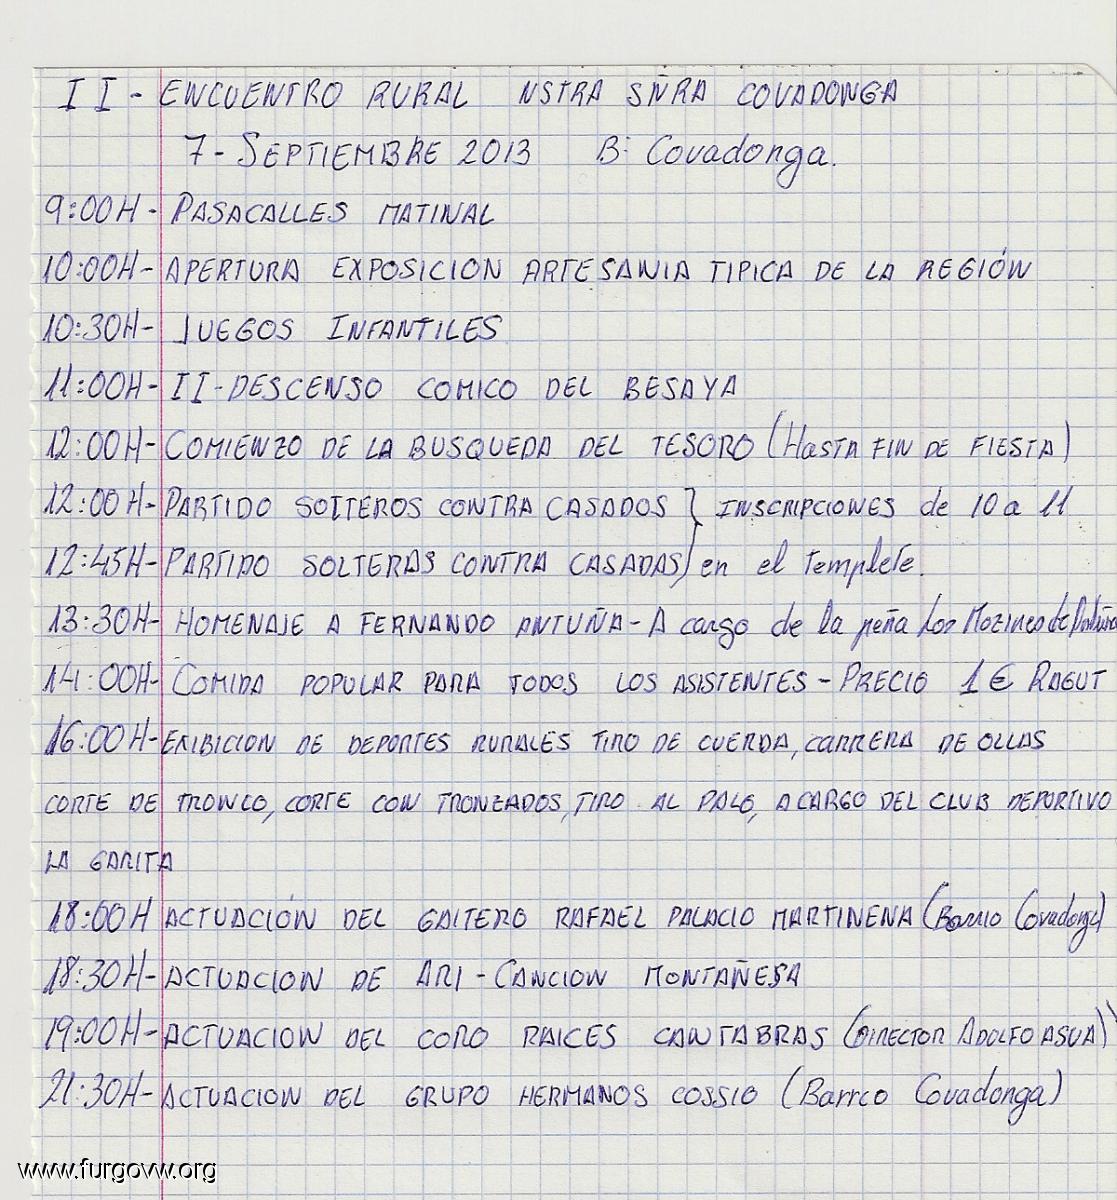 II - ENCUENTRO RURAL NSTRA SÑRA COVADONGA
7 - SEPTIEMBRE 2013 Bº Covadonga.
9:00H - PASACALLES MATINAL
10:00H - APERTURA EXPOSICION ARTESANIA TIPICA DE LA REGIÓN
10:30H - JUEGOS INFANTILES
11:00H - II - DESCENSO COMICO DEL BESAYA
12:00H - COMIENZO DE LA BUSQUEDA DEL TESORO (HASTA FIN DE FIESTA)
12:00H - PARTIDO SOLTEROS CONTRA CASADOS } INSCRIPCIONES de 10 a 11
12:45H - PARTIDO SOLTERAS CONTRA CASADAS } en el templete.
13:30H - HOMENAJE A FERNANDO ANTUÑA - A cargo de la peña Los
14:00H - COMIDA POPULAR PARA TODOS LOS ASISTENTES - PRECIO 1€ RAGUT
16:00H - EXIBICION DE DEPORTES RURALES TIRO DE CUERDA, CARRERA DE OLLAS
CORTE DE TRONCO, CORTE CON TRONZADOS, TIRO AL PALO, A CARGO DEL CLUB DEPORTIVO
LA GARITA
18:00H ACTUACIÓN DEL GAITERO RAFAEL PALACIO MARTINENA (Barrio Covadonga)
18:30H - ACTUACION DE ARI - CANCION MONTAÑESA
19:00H - ACTUACION DEL CORO RAICES CANTABRAS (DIRECTOR ADOLFO ASUA)
21:30H - ACTUACION DEL GRUPO HERMANOS COSSIO (Barrio Covadonga)
www.furgovw.org